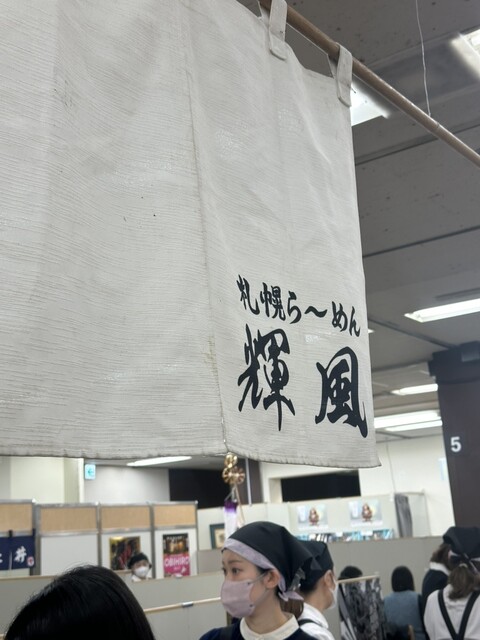 札幌ら〜めん
輝風
5
井
OBIHIRO